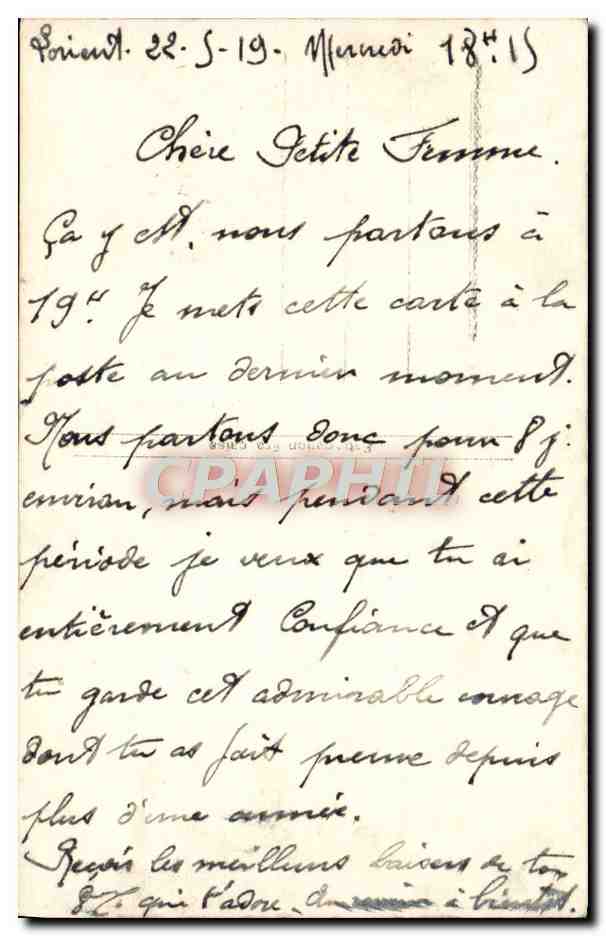 Lorient. 22-5-19. Mercredi 18H.15
Chère Petite Femme.
Ça y est, nous partons à
19H. Je mets cette carte à la
poste au dernier moment.
Nous partons donc pour 8 j.
Fabrication Française
CPARAMA
environ, mais pendant cette
période je veux que tu ai
entièrement Confiance et que
tu garde cet admirable courage
dont tu as fait preuve depuis
plus d'une année.
Reçois les meilleurs baisers de ton
qui t'adore. à bientôt.